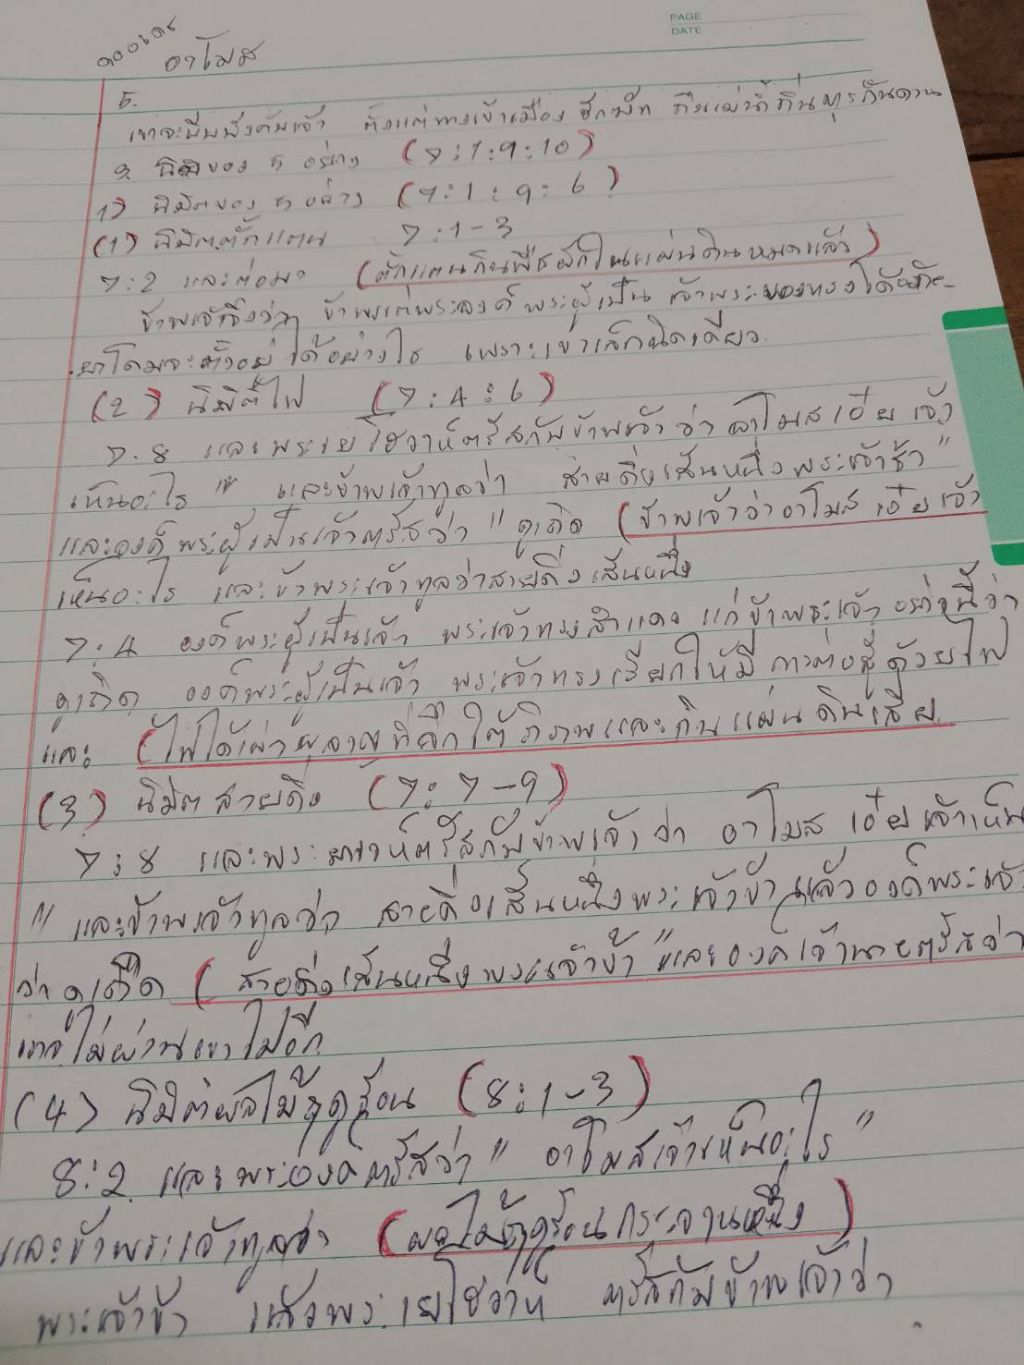 PAGE
DATE
อาโมส
5.
เขาจะบีบบังคับเจ้า ตั้งแต่ทางเข้าเมือง ฮามัท ถึงแม่น้ำถิ่นทุรกันดาร
2 นิมิตของ 5 อย่าง (7:1:9:10)
1) นิมิตของ 5 อย่าง (7:1:9:6)
(1) นิมิตตั๊กแตน 7:1-3
7:2 และต่อมา (ตั๊กแตนกินพืชผักในแผ่นดินหมดแล้ว)
ข้าพเจ้าจึงว่า ข้าแต่พระองค์ พระผู้เป็น เจ้าพระของทรงได้
ยาโคบจะตั้งอยู่ ได้อย่างไร เพราะเขาเล็กนิดเดียว
(2) นิมิตไฟ (7:4:6)
7.8 และพระเยโฮวาห์ตรัสกับข้าพเจ้า ว่า อาโมส เอ๋ย เจ้า
เห็นอะไร " และข้าพเจ้าทูลว่า สายดิ่งเส้นหนึ่งพระเจ้าข้า"
และองค์พระผู้เป็นเจ้าตรัสว่า " ดูเถิด (ข้าพเจ้าว่าอาโมส เอ๋ย เจ้า
เห็นอะไร และข้าพระเจ้าทูลว่าสายดิ่งเส้นหนึ่ง
7:4 องค์พระผู้เป็นเจ้า พระเจ้าทรงสำแดง แก่ข้าพระเจ้า อย่างนี้ว่า
ดูเถิด องค์พระผู้เป็นเจ้า พระเจ้าทรงเรียกให้มี การต่อสู้ด้วยไฟ
และ (ไฟได้เผาผลาญที่ลึกใต้ และกินแผ่นดินเสีย
(3) นิมิตสายดิ่ง (7:7-9)
7:8 และพระ ตรัสกับข้าพเจ้า ว่า อาโมส เอ๋ย เจ้าเห็น
" และข้าพเจ้าทูลว่า สายดิ่งเส้นหนึ่งพระเจ้าข้า แล้วองค์พระเจ้า
ว่า ดูเถิด ( สายดิ่งเส้นหนึ่งพระเจ้าข้า "และองค์เจ้านายตรัสว่า
เราจะไม่ผ่านเขาไปอีก
(4) นิมิตผลไม้ฤดูร้อน (8:1-3)
8:2 และพระองค์ตรัสว่า " อาโมสเจ้าเห็นอะไร "
และข้าพระเจ้าทูลว่า (ผลไม้ฤดูร้อนกระจาดหนึ่ง)
พระเจ้าข้า แล้วพระเยโฮวาห์ ตรัสกับข้าพเจ้าว่า